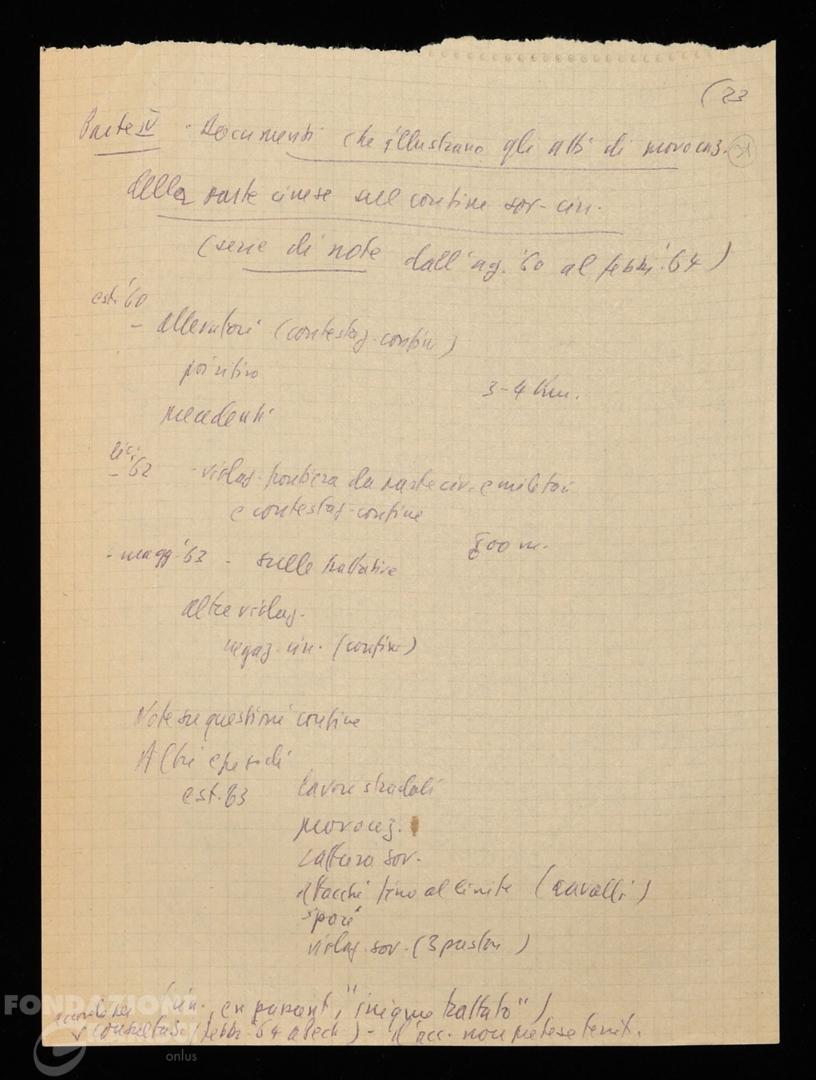 (23
Parte IV - Documenti che illustrano gli atti di provocaz.
della parte cinese sul confine sov-cin.
(serie di note dall'ag. '60 al febbr. '64)
est. '60
- allevatori (contestaz. confini)
pointivo
3-4 Km.
precedenti
'62 - violaz. frontiera da parte civ. e militari
e contestaz. confine
800 m.
- magg. '63 - sulle trattative
altre violaz.
negaz. cin. (confine)
Note su questioni confine
Altri episodi
est. 63 lavori stradali
provocaz.
cattura sov.
attacchi fino al limite (cavalli)
spari
violaz. sov. (3 pastori)
cin. en passant, "iniquo trattato")
accordo per
consultaz. (febbr. '64 a Pech.) - d'acc. non pretese territ.
FONDAZIONE
onlus